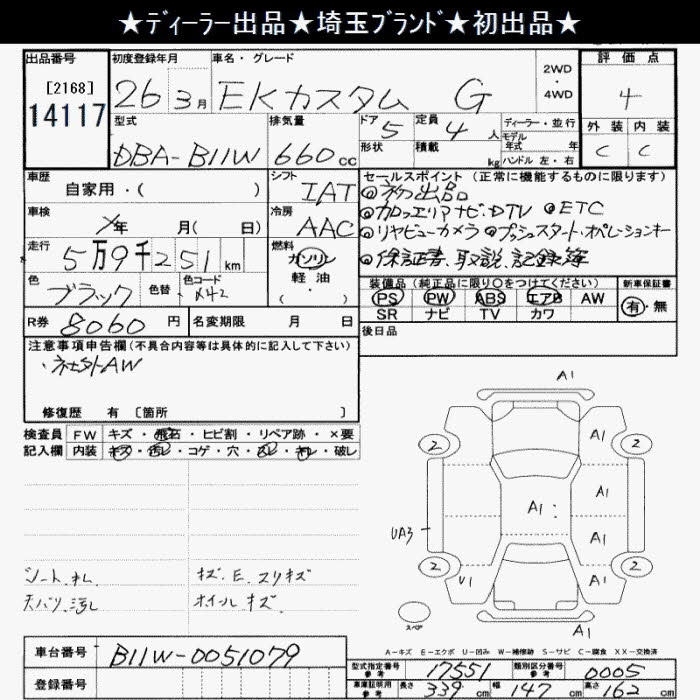 ★ディーラー出品★埼玉ブランド★初出品★
出品番号 初度登録年月 車名・グレード 2WD 評価点
[2168] 26年 3月 EKカスタム G ・ 4
14117 4WD
型式 排気量 ドア 5 定員 4人 ディーラー・並行 外装 内装
DBA-B11W 660cc 形状 積載 kg モデル年式 年 C C
ハンドル 左・右
車歴 シフト セールスポイント (正常に機能するものに限ります)
自家用・( ) IAT ◎初出品
車検 冷房 ◎カロッエリアナビ・DTV ◎ETC
年 月( 日) AAC ◎リヤビューカメラ ◎プッシュスタート・オペレーションキー
走行 燃料 ◎保証書、取説、記録簿
5万9千251km ガソリン
色 色替 色コード 軽油 装備品 (純正品に限り○をつけてください) 新車保証書
ブラック X42 ・( ) PS PW ABS エアB AW 有・無
R券 8060円 名変期限 月 日 SR ナビ TV カワ
注意事項申告欄(不具合内容等は具体的に記入して下さい) 後日品
・社外AW
修復歴 有 [箇所 ]
検査員 FW キズ・飛石・ヒビ割・リペア跡・×要
記入欄 内装 キズ・汚レ・コゲ・穴・スレ・キレ・破レ
A1
2 A1 2
A1 A1
UA3
2 U1 A1 2
スペア
A1
シートキレ キズ、E、スリキズ
天バリ汚レ ホイールキズ
A-キズ E-エクボ U-凹み W-補修跡 S-サビ C-腐食 XX-交換済
車台番号 B11W-0051079 型式指定番号 参考 17551 類別区分番号 参考 0005
登録番号 車庫証明用 参考 長さ 339cm 幅 147cm 高さ 162cm